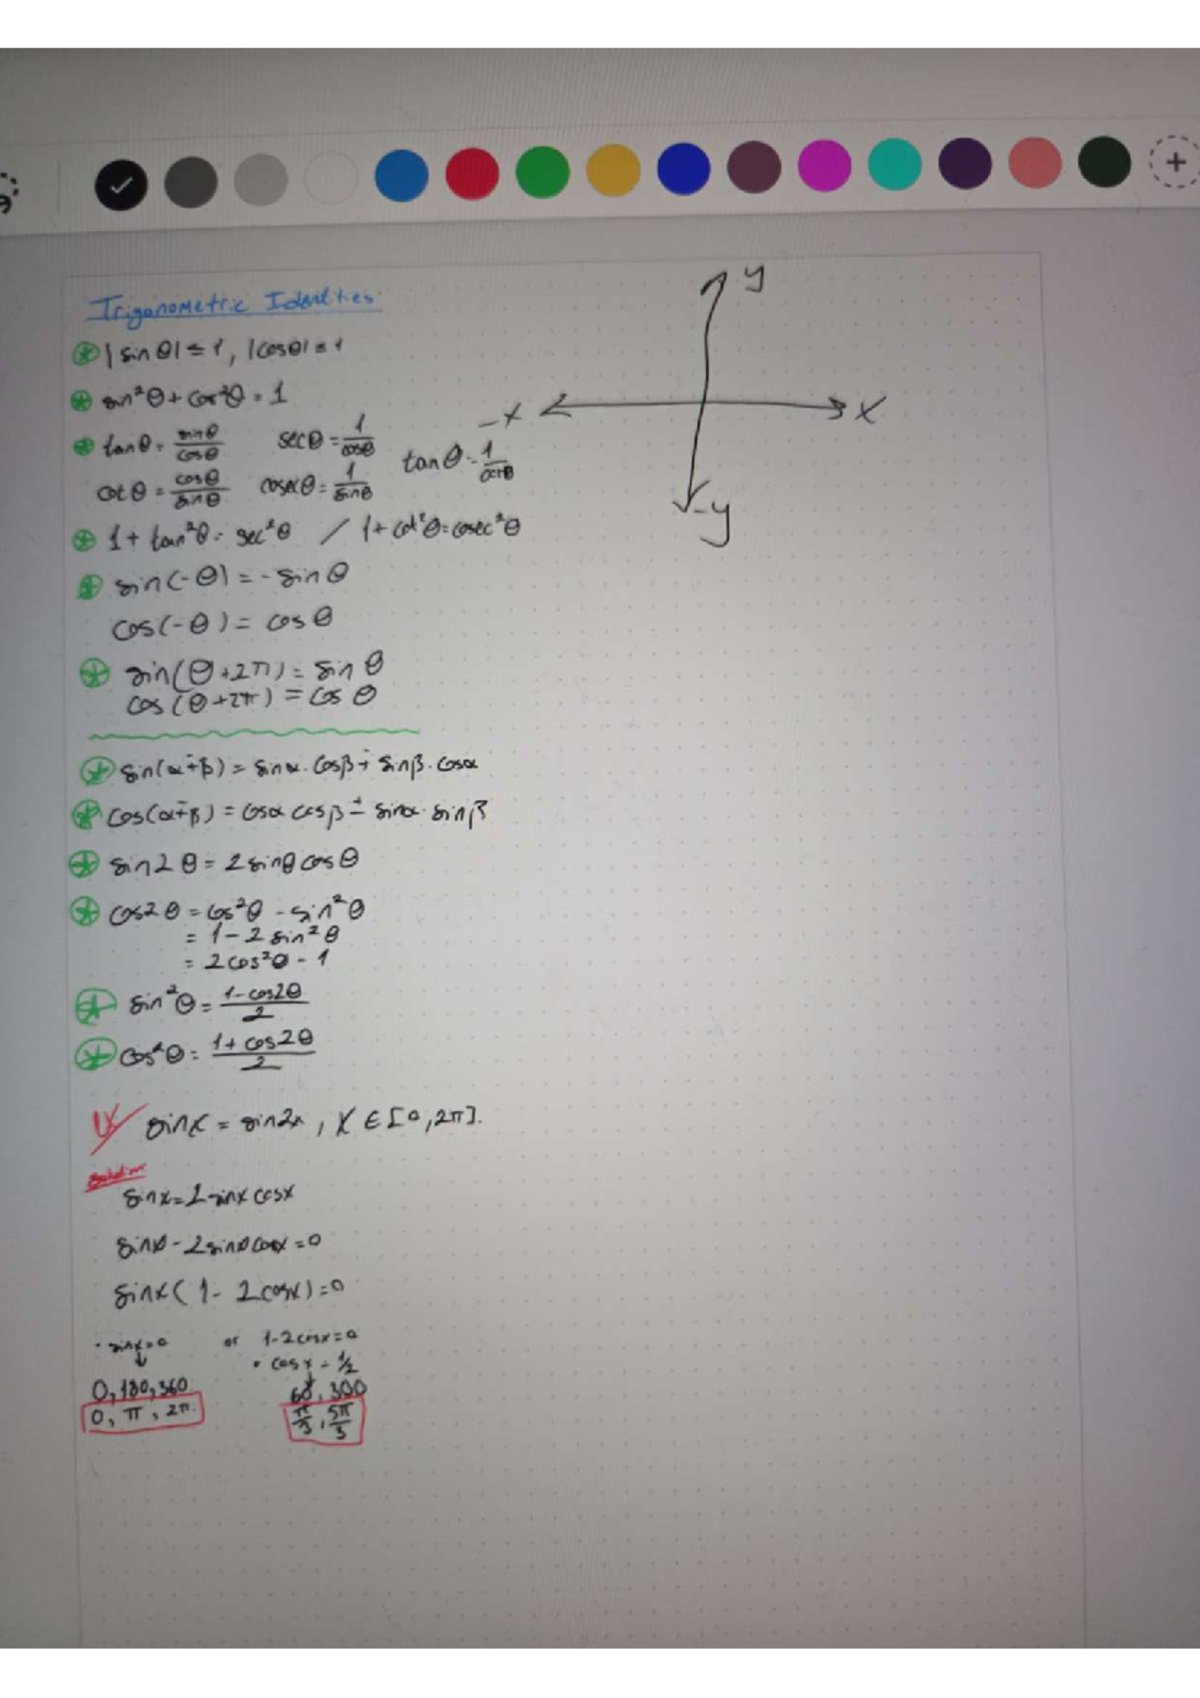 Trigonometric Identities
y
|sin θ| ≤ 1, |cosθ| ≤ 1
sin²θ + cos²θ = 1
-x
x
tanθ = sinθ/cosθ secθ = 1/cosθ tanθ = 1/cotθ
cotθ = cosθ/sinθ cosecθ = 1/sinθ
-y
1 + tan²θ = sec²θ / 1 + cot²θ = cosec²θ
sin(-θ) = -sinθ
cos(-θ) = cosθ
sin(θ+2π) = sin θ
cos(θ+2π) = cos θ
sin(α∓β) = sinα.cosβ ∓ sinβ.cosα
cos(α∓β) = cosα cosβ ± sinα.sinβ
sin2θ = 2sinθcosθ
cos2θ = cos²θ - sin²θ
= 1-2sin²θ
= 2cos²θ - 1
sin²θ = 1-cos2θ/2
cos²θ = 1+cos2θ/2
sinx = sin2x, x ∈ [0,2π].
Solution
sinx = 2sinxcosx
sinx - 2sinxcosx = 0
sinx(1- 2cosx) = 0
• sinx=0 or 1-2cosx=0
• cosx = 1/2
0,180,360 60,300
0, π, 2π. π/3, 5π/3